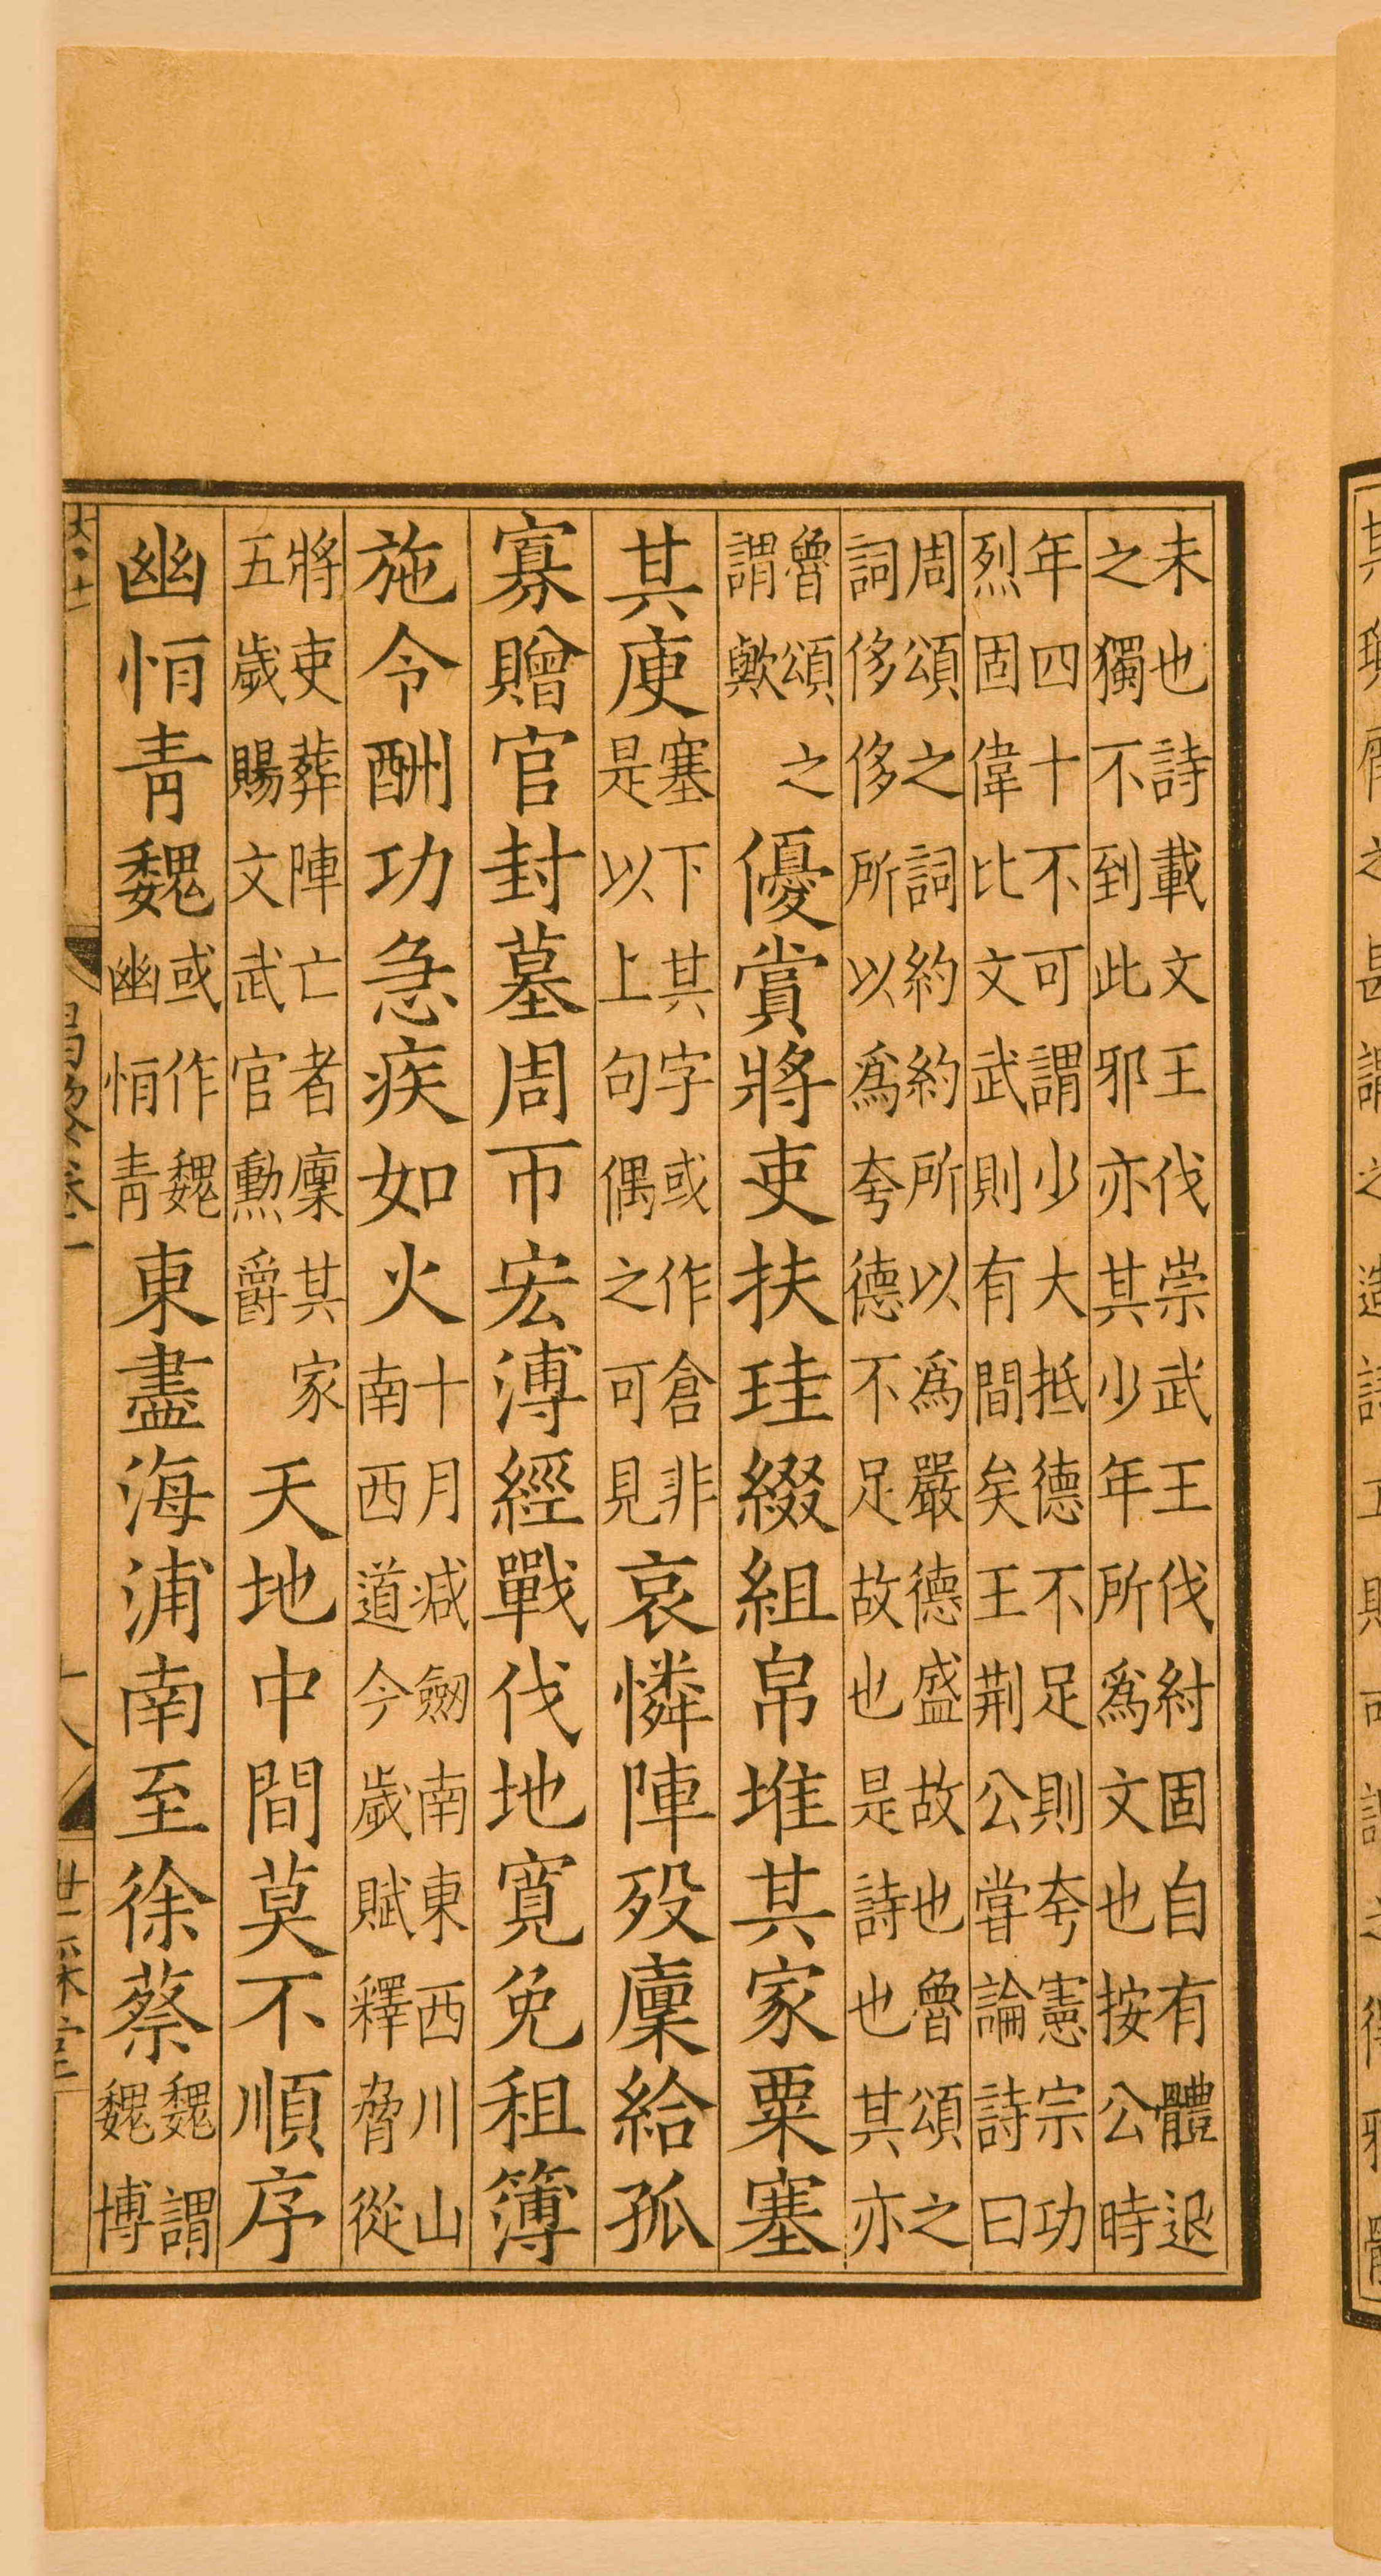 未也詩載文王伐崇武王伐紂固自有體退
之獨不到此邪亦其少年所爲文也按公時
年四十不可謂少大抵德不足則夸憲宗功
烈固偉比文武則有間矣王荆公嘗論詩曰
周頌之詞約約所以爲嚴德盛故也魯頌之
詞侈侈所以爲夸德不足故也是詩也其亦
魯頌之
謂歟
優賞將吏扶珪綴組帛堆其家粟塞
其庾
塞下其字或作倉非
是以上句偶之可見
哀憐陣歿廩給孤
寡贈官封墓周帀宏溥經戰伐地寛免租簿
施令酬功急疾如火
十月減劒南東西川山
南西道今歲賦釋脅從
將吏葬陣亡者廩其家
五歲賜文武官勲爵
天地中間莫不順序
幽恒青魏
或作魏
幽恒青
東盡海浦南至徐蔡
魏謂
魏博